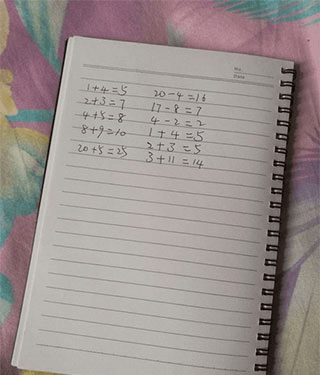 No.
Date
1+4=5 20-4=16
2+3=7 17-8=3
4+5=8 4-2=2
8+9=10 1+4=5
20+5=25 2+3=5
3+11=14